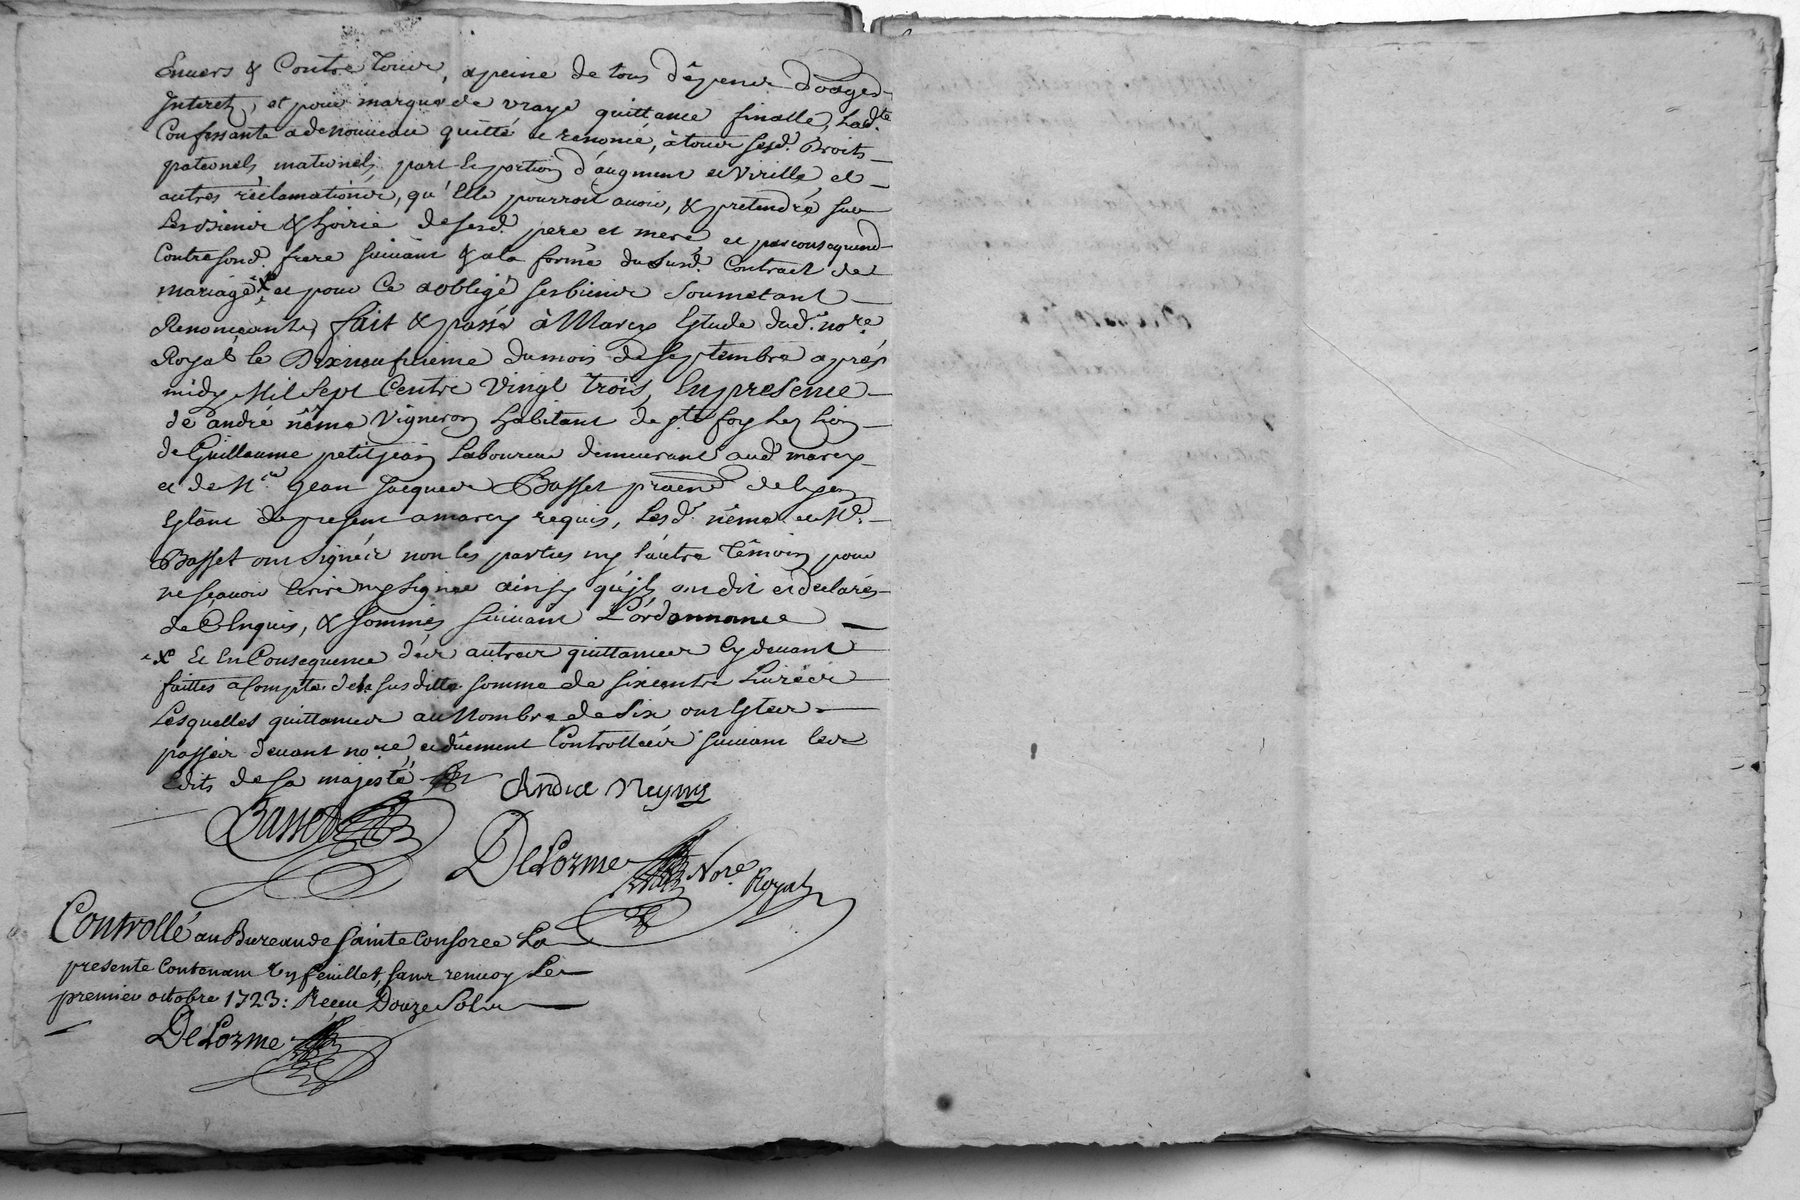 Envers & Contre tous, a peine de tous dépens domages
Interets, et pour marque de vraye quittance finalle, Ladte
Confessante a de nouveau quitté et renoncé, à tous sesd. Droits
paternels, maternels, part et portion d'augment et virille, et
autres réclamations, qu'Elle pourroit avoir, & pretendre sur
Les biens & hoirie de sesd. pere et mere et par consequend
Contre sond. frere suivant & a la forme du susd. Contract de
mariage, x et pour Ce a obligé ses biens soumetant
Renonçants, fait & passé à Marcy Estude dud. nore
Royal le Dixneufvieme du mois de Septembre après
midy Mil sept Cents vingt trois, En presence
de andré néma Vigneron habitant de ste foy Lez Lion
de Guillaume petitjean Laboureur demeurant aud marcy
et de Mre Jean Jacques Basset de Lyon
Estant de present a marcy requis, Lesd. néma et Mr.
Basset ont signéz non les parties ny l'autre témoin pour
ne sçavoir Ecrire ny signer ainsy qu'ils ont dit et declarés
de Enquis, & sommés suivant L'ordonnance
x Et En Consequence des autres quittances Cy devant
faittes a Compte de la susditte somme de six cents Livres
Lesquelles quittances au Nombre de six ont Estez
passéz devant nore, et düement Controlleés suivant les
Edits de sa majesté
Andre Neyme
Basset
DeLorme Nore Royal
Controllé au Bureau de Sainte Consorce La
presente Contenant un feuillet, sans renvoy Le
premier octobre 1723: Receu Douze Sols
DeLorme